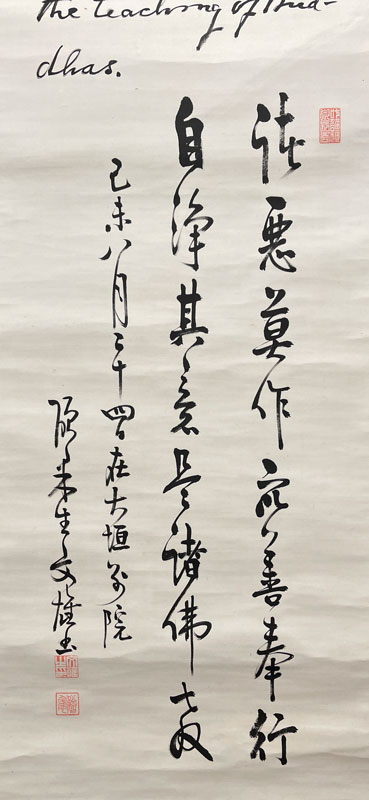 the teaching of Bud-
dhas.
諸悪莫作衆善奉行
自淨其意是諸佛教
己未八月二十四日在大垣別院
碩果生文雄書